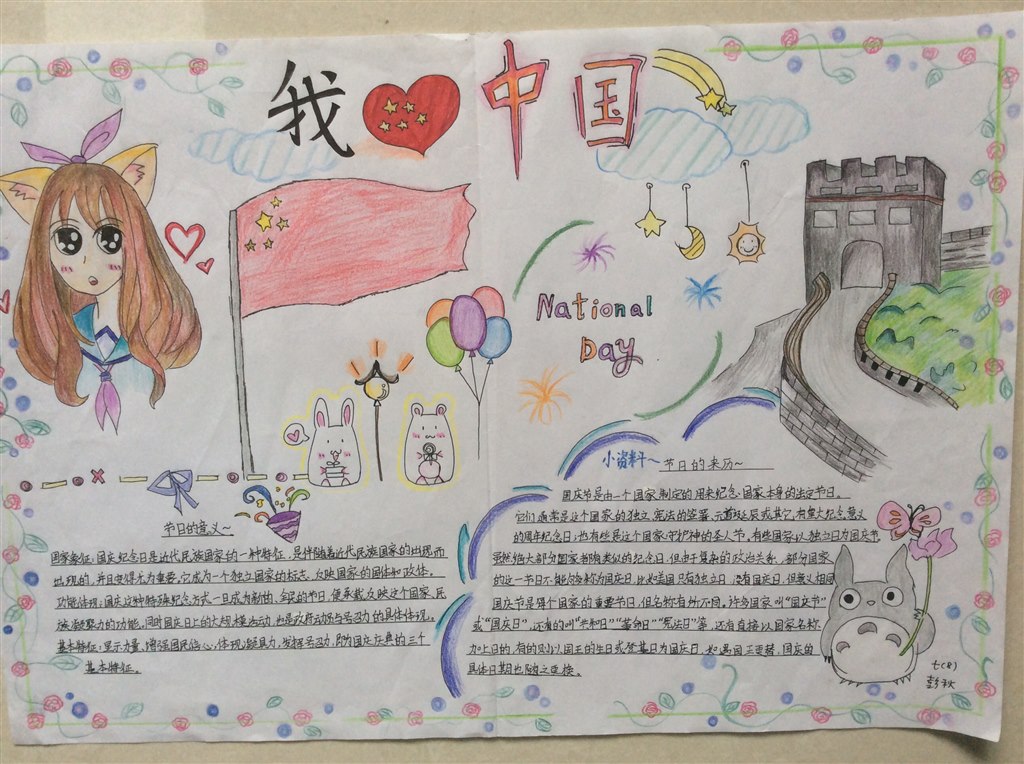 我 中国
National
Day
小资料~节日的来历~
国庆节是由一个国家制定的用来纪念国家本身的法定节日。
它们通常是这个国家的独立、宪法的签署、元首诞辰或其它有重大纪念意义
的周年纪念日;也有些是这个国家守护神的圣人节。有些国家以独立日为国庆节
虽然绝大部分国家都有类似的纪念日,但由于复杂的政治关系,部分国家
的这一节日不能够称为国庆日,比如美国只有独立日,没有国庆日,但意义相同
国庆节是每个国家的重要节日,但名称有所不同。许多国家叫“国庆节”
或“国庆日”,还有的叫“共和日”“革命日”“宪法日”等,还有直接以国家名称
加上日的,有的则以国王的生日或登基日为国庆日,如遇国王更替,国庆的
具体日期也随之更换。
节日的意义~
国家象征:国庆纪念日是近代民族国家的一种特征,是伴随着近代民族国家的出现而
出现的,并且变得尤为重要。它成为一个独立国家的标志,反映国家的国体和政体。
功能体现:国庆这种特殊纪念方式一旦成为新的、全民的节日,便承载反映这个国家、民
族凝聚力的功能。同时国庆日上的大规模活动,也是政府动员与号召力的具体体现。
基本特征:显示力量、增强国民信心,体现凝聚力,发挥号召力,即为国庆庆典的三个
基本特征。
七(8)
彭秋